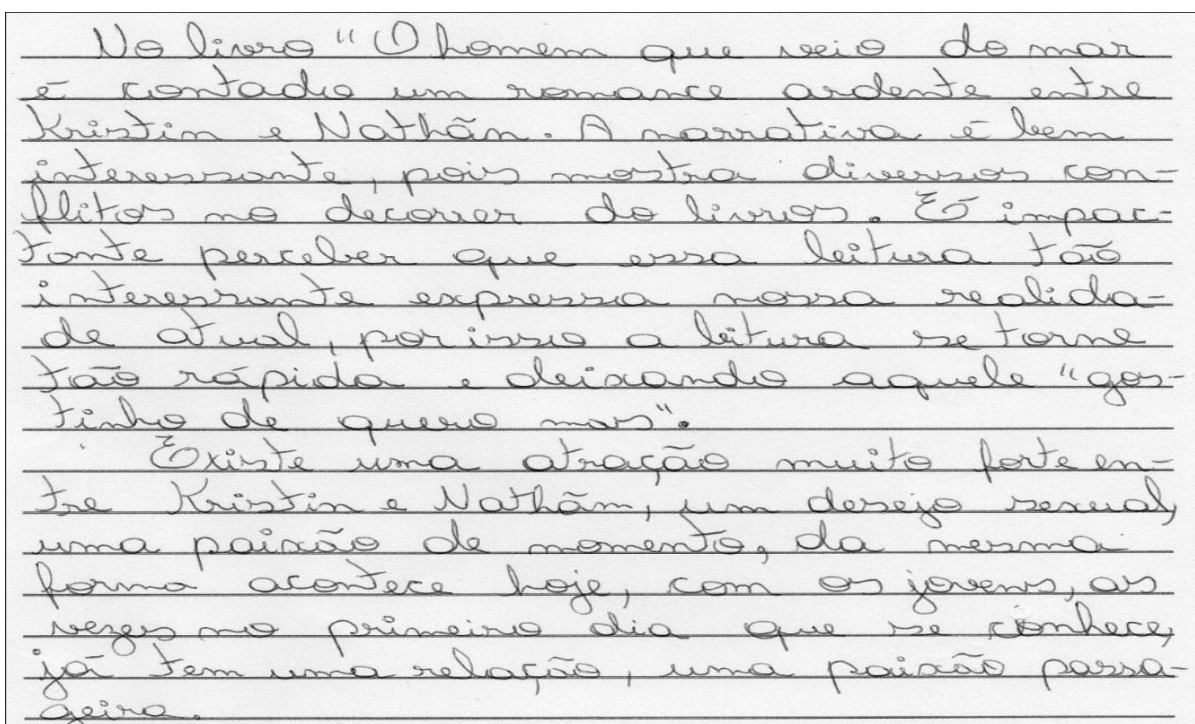 No livro "O homem que veio do mar
é contado um romance ardente entre
Kristin e Nathãn. A narrativa é bem
interessante, pois mostra diversos con-
flitos no decorrer do livros. É impac-
tante perceber que essa leitura tão
interessante expressa nossa realida-
de atual, por isso a leitura se torne
tão rápida e deixando aquele "gos-
tinho de quero mais".
Existe uma atração muito forte en-
tre Kristin e Nathãn, um desejo sexual,
uma paixão de momento, da mesma
forma acontece hoje, com os jovens, as
vezes no primeiro dia que se conhece,
já tem uma relação, uma paixão passa-
geira.